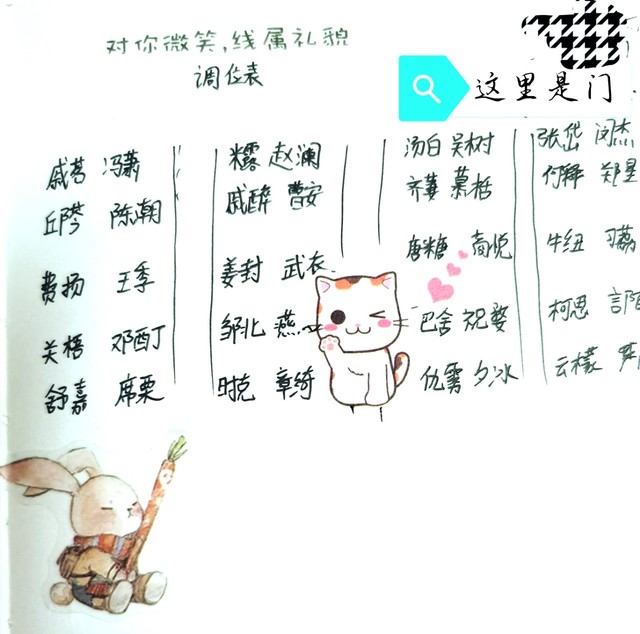 对你微笑,线属礼貌
调位表
这里是门
戚茗 冯萧 糯 赵澜 汤白 吴树 张岱 闵杰
戚醉 曹安 齐萋 慕栝 何释 郑星
丘 陈潮
姜封 武衣 唐糖 简悦 牛纽 习荔
费扬 王季
邹北 燕 巴舍 祝婺 柯思
关梧 邓酉丁
舒嘉 席栗 时克 章绮 仇雾 夕冰 云檬